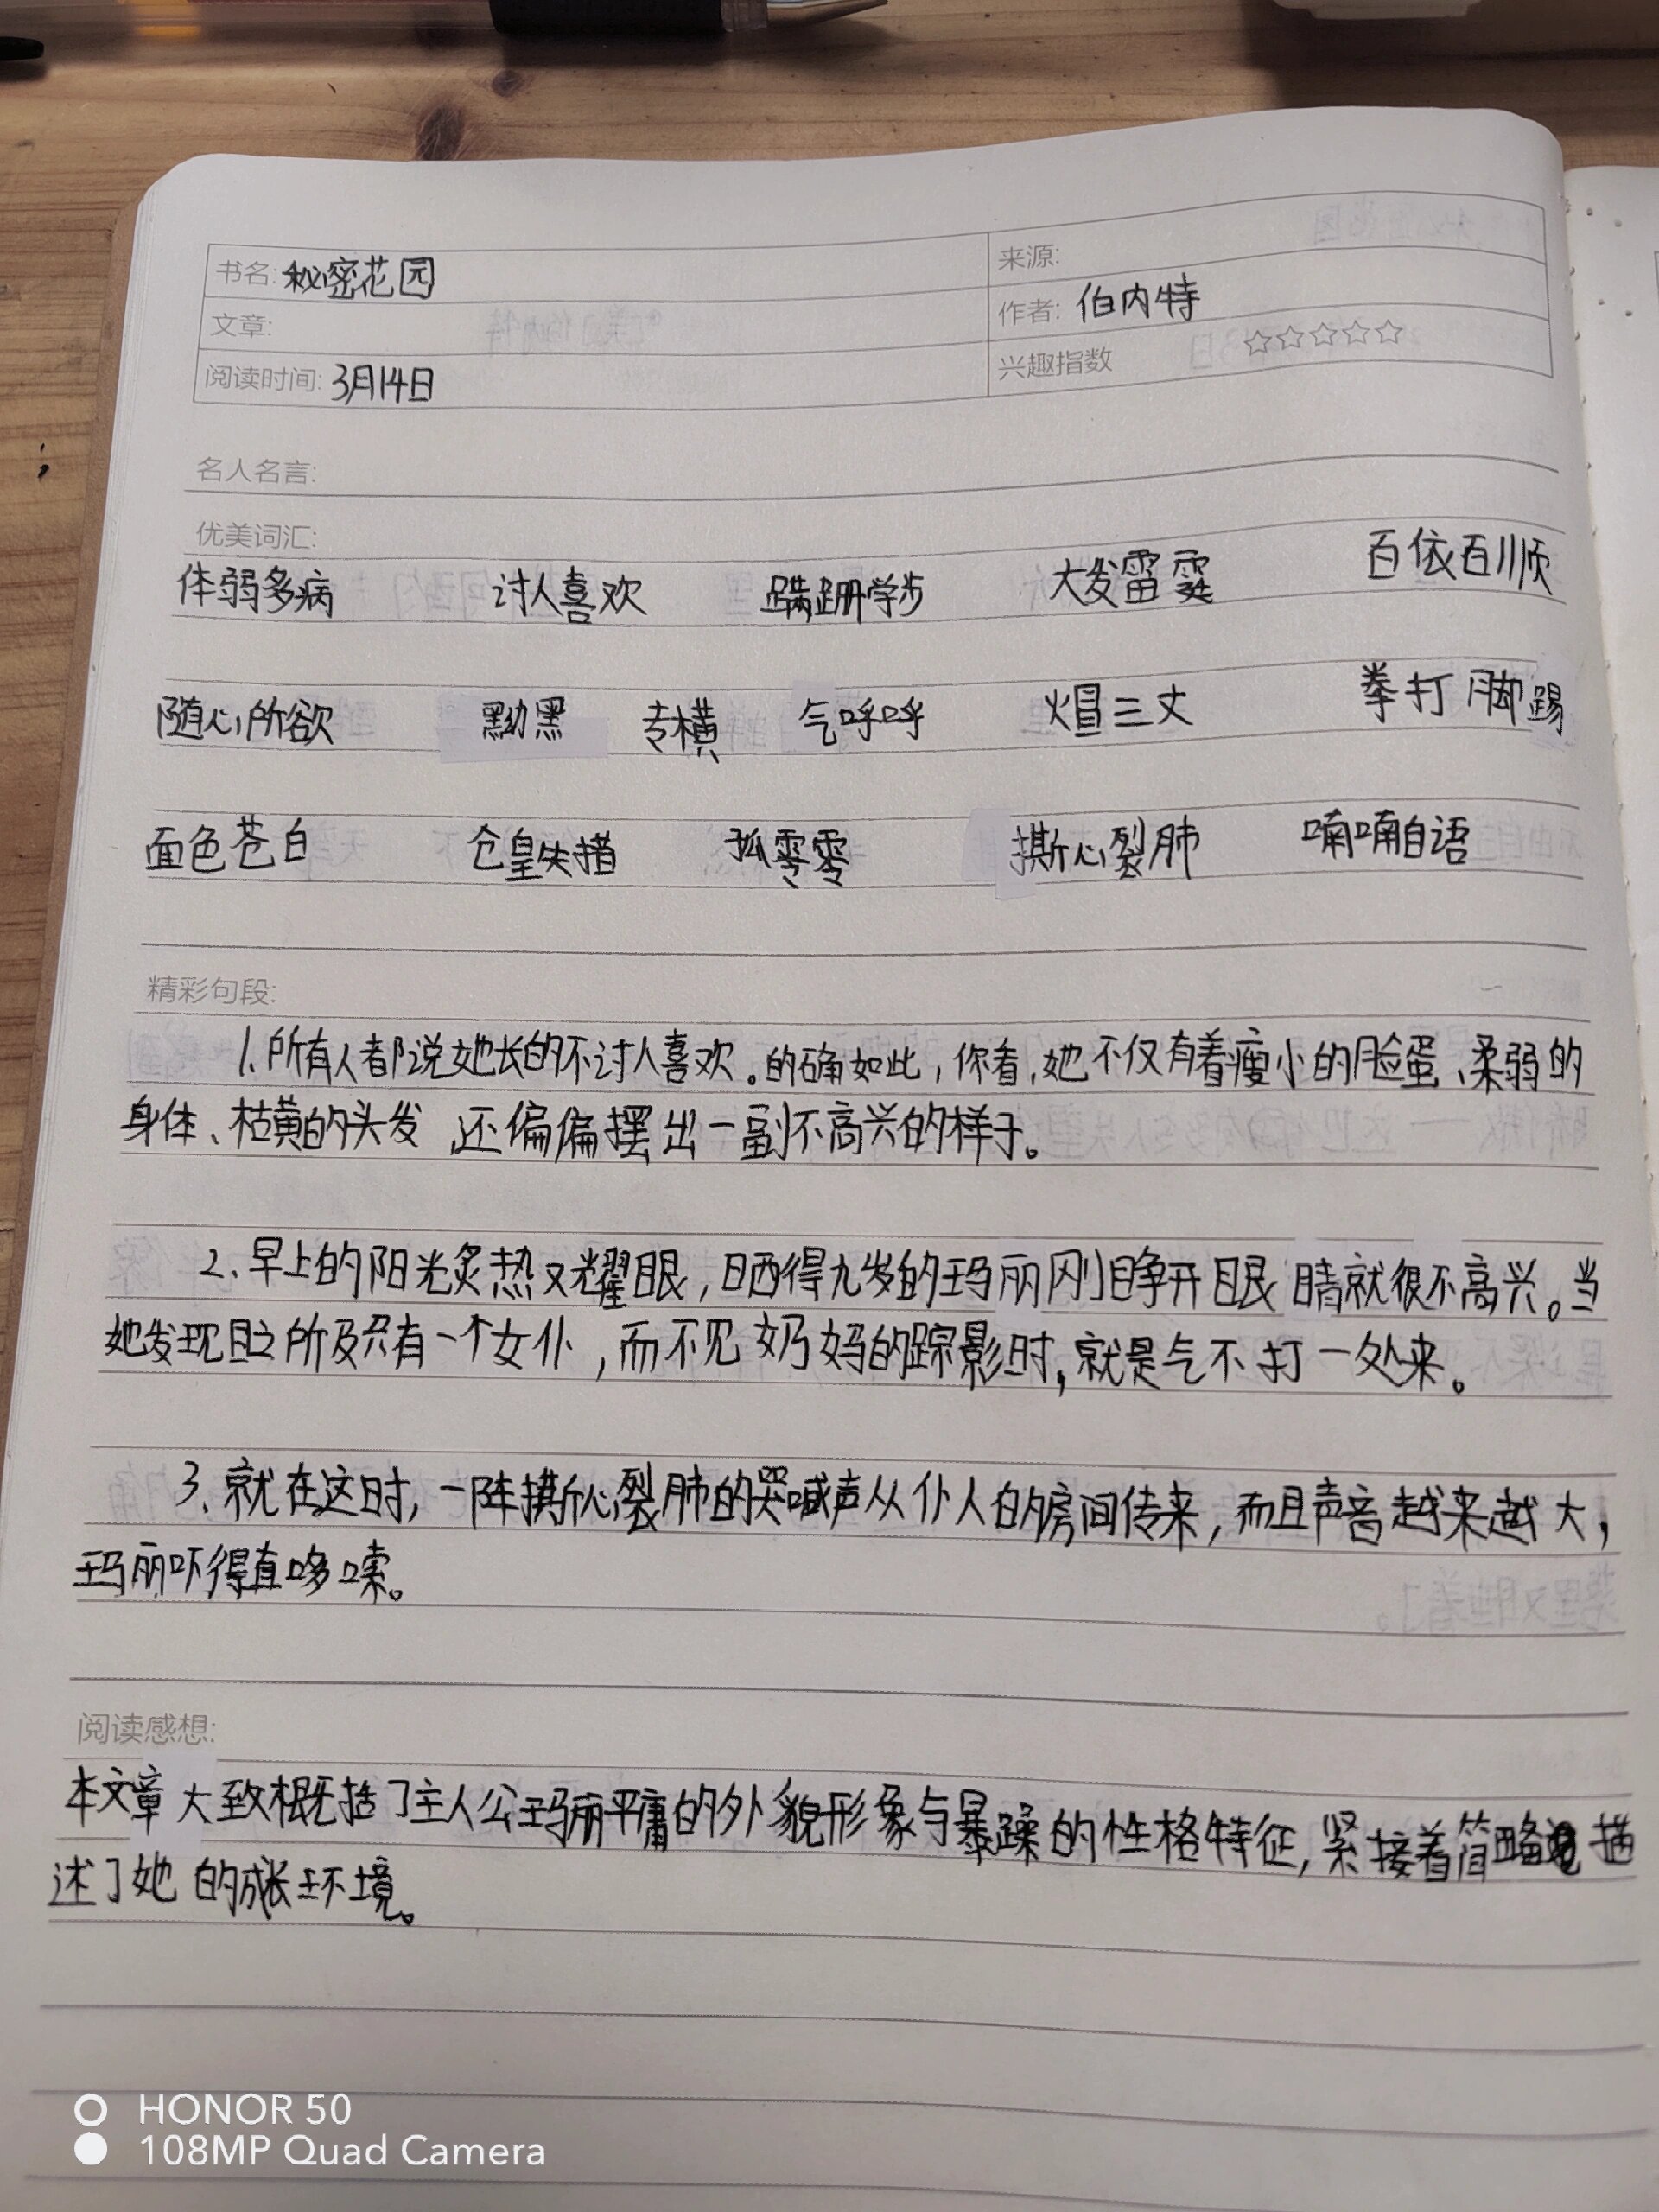 书名: 秘密花园
来源:
作者: 伯内特
文章:
阅读时间: 3月14日
兴趣指数 ☆☆☆☆☆
名人名言:
优美词汇:
体弱多病 讨人喜欢 蹒跚学步 大发雷霆 百依百顺
随心所欲 黝黑 专横 气呼呼 火冒三丈 拳打脚踢
面色苍白 仓皇失措 孤零零 撕心裂肺 喃喃自语
精彩句段:
1.所有人都说她长的不讨人喜欢。的确如此,你看,她不仅有着瘦小的脸蛋、柔弱的
身体、枯黄的头发,还偏偏摆出一副不高兴的样子。
2、早上的阳光炙热又耀眼,晒得九岁的玛丽刚睁开眼睛就很不高兴。当
她发现目之所及只有一个女仆,而不见奶妈的踪影时,就是气不打一处来。
3、就在这时,一阵撕心裂肺的哭喊声从仆人的房间传来,而且声音越来越大,
玛丽吓得直哆嗦。
阅读感想:
本文章大致概括了主人公玛丽平庸的外貌形象与暴躁的性格特征,紧接着简略描
述了她的成长环境。
HONOR 50
108MP Quad Camera